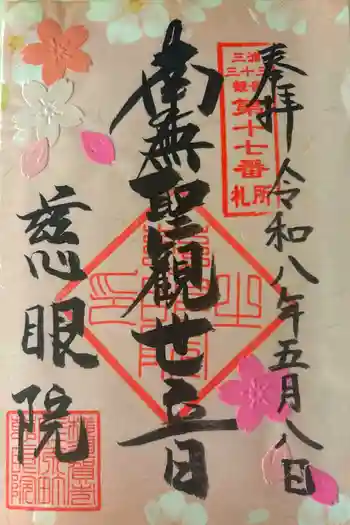 奉拝 令和八年五月八日
三浦
三十三
観音
第十七番
札所
南無聖観世音
慈眼院